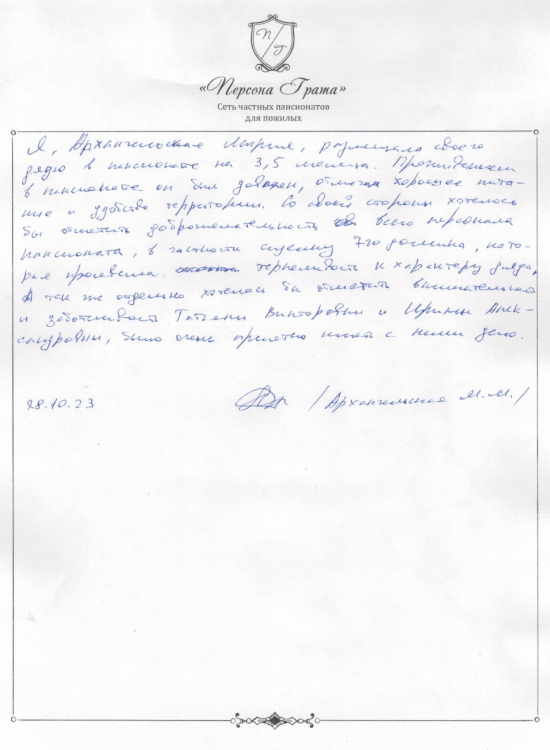 П Г
«Персона Грата»
Сеть частных пансионатов
для пожилых
Я, Архангельская Мария, размещала своего
дядю в пансионате на 3,5 месяца. Проживанием
в пансионате он был доволен, отмечал хорошее пита-
ние и удобство территории. Со своей стороны хотелось
бы отметить доброжелательность всего персонала
пансионата, в частности 7го домика, кото-
рая проявила терпеливость к характеру дяди,
А так же отдельно хотелось бы отметить внимательность
и заботливость Татьяны Викторовны и Ирины Алек-
сандровны, было очень приятно иметь с ними дело.
28.10.23 /Архангельская М.М./